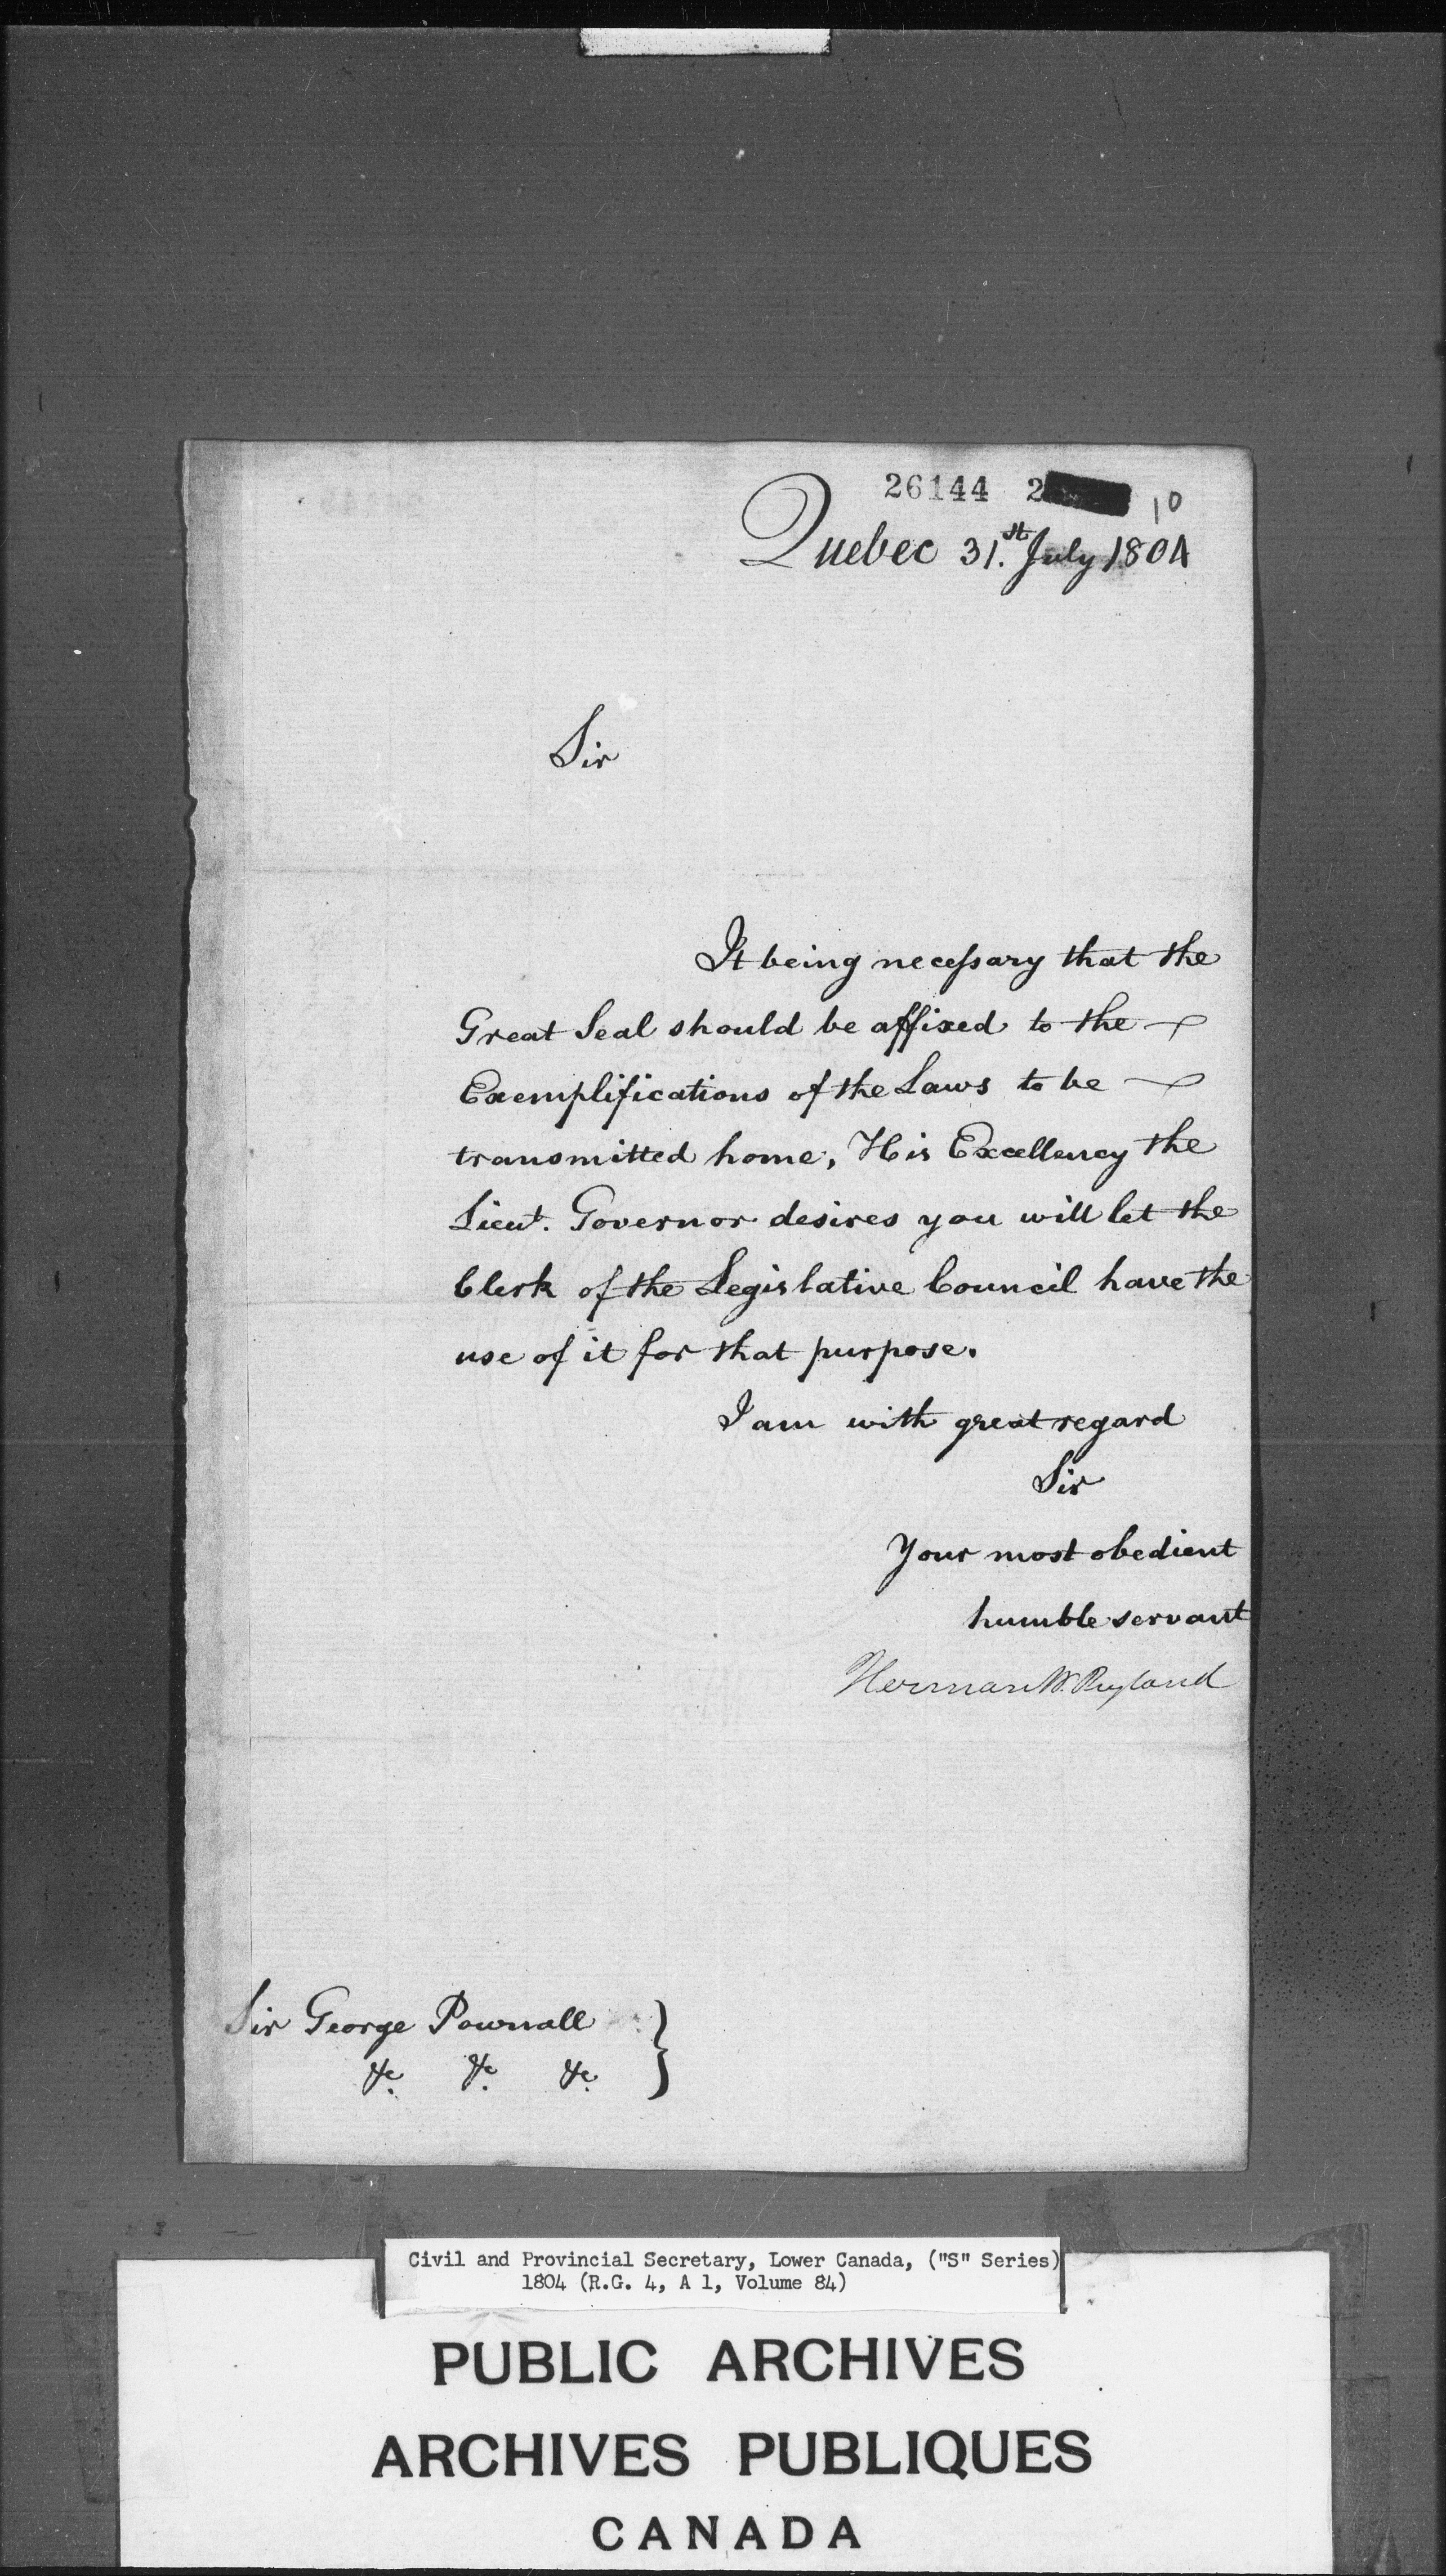 26144 2
10
Quebec 31.st July 1804
Sir
It being necessary that the
Great Seal should be affixed to the
Exemplifications of the Laws to be
transmitted home, His Excellency the
Lieut. Governor desires you will let the
Clerk of the Legislative Council have the
use of it for that purpose.
I am with great regard
Sir
Your most obedient
humble servant
Herman W. Ryland
Sir George Pownall
&c. &c. &c. }
Civil and Provincial Secretary, Lower Canada, ("S" Series)
1804 (R.G. 4, A 1, Volume 84)
PUBLIC ARCHIVES
ARCHIVES PUBLIQUES
CANADA